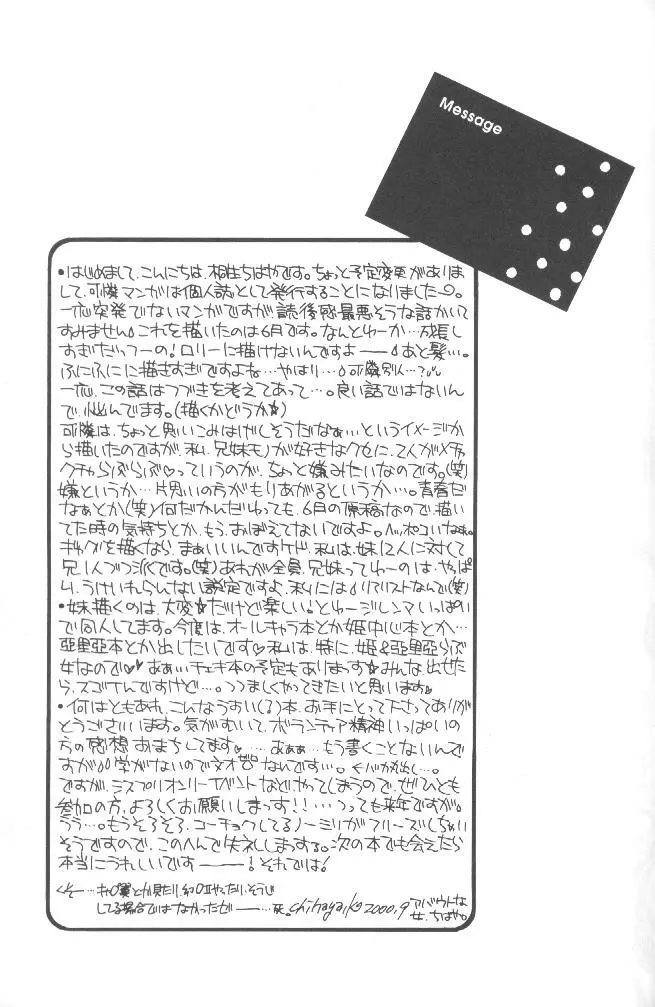 Message
•はじめまして、こんにちは、相生ちはやです。ちょっと予定変更がありま
して、可憐マンガは個人誌として発行することになりました〜。
一応突発でないマンガですが、読後感最悪そうな話かいて
すみません♪これを描いたのは6月です。なんとゆーか…成長し
すぎだっつーの!ロリーに描けないんですよ——♪あと髪…。
ふにふにに描きすぎですよね…やはり…♪可憐別人…?
一応、この話はつづきを考えてあって…。良い話ではないん
で、悩んでます。(描くかどうか☆)
可憐は、ちょっと思いこみはげしそうだなぁ…というイメージか
ら描いたのですが、私、兄妹モノが好きなクセに、2人がメチャ
クチャらぶらぶっていうのが、ちょっと嫌みたいなのです。(笑)
嫌というか…片思いの方がもりあがるというか…。青春だ
なぁとか(笑)何だかんだいっても、6月の原稿なので、描い
てた時の気持ちとか、もう、おぼえてないですよ。ヘッポコいなぁ。
ギャグを描くなら、まぁいいんですケド、私は、妹12人に対して
兄1人づつ派です。(笑)あれが全員、兄妹ってゆーのは、やっぱ
り、うけいれらんない設定ですよ、私には♪リアリストなんで(笑)
•妹描くのは、大変☆だけど楽しい!とゆージレンマいっぱい
で同人してます。今度は、オールキャラ本とか姫中心本とか…
亜里亜本とか出したいです♡私は、特に、姫&亜里亜らぶ
女なので♡♡あぁぃチェキ本の予定もありまっす☆みんな出せた
ら、スゴイんですけど…。つつましくやってきたいと思います♪
•何はともあれ、こんなうすい(?)本、お手にとって下さってありが
とうございます。気がむいて、ボランティア精神いっぱいの
方の感想おまちしてます♡……あぁぁ…もう書くことないんで
すが♪♪学がないので文オンチなんです…。←バカ丸出し…。
ですが、ミスプリオンリーイベントなどやってしまうので、ぜひとも
参加の方、よろしくお願いしまっす!!…つっても来年ですが♪
うう…。もうそろそろ、コーチョクしてるノーミソがフリーズしちゃい
そうですので、このへんで失礼しまっする。次の本でも会えたら
本当にうれしいです———!それでは!
してる場合ではなかったぜ——…死。chihayaiko 2000.9
アバウトな
女、ちはや。